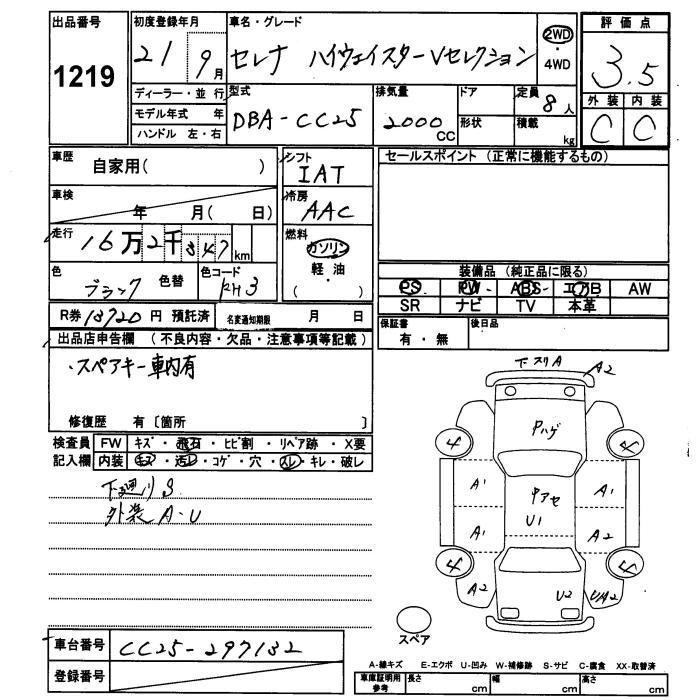 出品番号
1219
初度登録年月
21 9月
車名・グレード
セレナ ハイウェイスターVセレクション
2WD
・
4WD
評価点
3.5
外装 内装
C C
ディーラー・並行
モデル年式 年
ハンドル 左・右
型式
DBA-CC25
排気量
2000
CC
ドア
形状
定員
8人
積載
kg
車歴
自家用( )
車検
年 月( 日)
走行
16万2千347km
色
ブラック 色替
色コード
KH3
シフト
IAT
冷房
AAC
燃料
ガソリン
軽油
( )
セールスポイント (正常に機能するもの)
装備品 (純正品に限る)
PS PW ABS エアB AW
SR ナビ TV 本革
R券 円 預託済
名変通知期限 月 日
保証書
有・無
後日品
出品店申告欄 (不良内容・欠品・注意事項等記載)
・スペアキー車内有
修復歴 有〔箇所 〕
検査員
記入欄
FW キズ・飛石・ヒビ割・リペア跡・X要
内装 キズ・汚レ・コゲ・穴・スレ・キレ・破レ
下廻りS
外装A・U
下スリA
A2
Pハゲ
4
4
A1
中アセ
U1
A1
A1
A2
4
4
A2
U2
UA2
スペア
車台番号
CC25-297132
登録番号
A-線キズ E-エクボ U-凹み W-補修跡 S-サビ C-腐食 XX-取替済
車庫証明用
参考
長さ cm
幅 cm
高さ cm